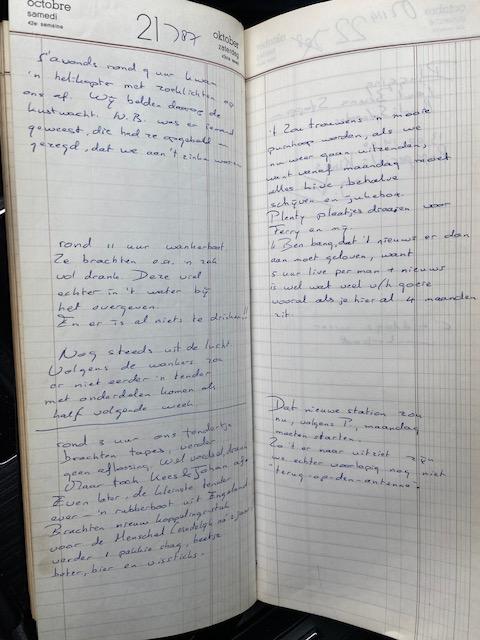 octobre
samedi
42e semaine
21 787
oktober
zaterdag
's avonds rond 9 uur kwam
'n helikopter met zoeklichten op
ons af. Wij belden daarop de
kustwacht. N.B. was er iemand
geweest, die had ze opgebeld en
gezegd, dat we aan 't zinken waren
rond 11 uur wankerboot.
Ze brachten o.a. 'n zak
vol drank. Deze viel
echter in 't water bij
het overgeven.
En er is al niets te drinken!!
Nog steeds uit de lucht.
Volgens de wankers zou
er niet eerder 'n tender
met onderdelen komen als
half volgende week.
rond 3 uur ons tendertje
brachten tapes, verder
geen aflossing. Wel
Maar toch, Kees & Johan af.
Even later de kleinste tender
ever - 'n rubberboot uit Engeland
Brachten nieuw koppelingsstuk
voor de Henschel (eindelijk na 2 jaar)
verder 1 pakkie shag, beetje
boter, bier en vissticks.
't Zou trouwens 'n mooie
puinhoop worden, als we
nu weer gaan uitzenden,
want vanaf maandag moet
alles live, behalve
schijven en jukebox.
Plenty plaatjes draaien voor
Ferry en mij.
k Ben bang, dat 't nieuws er dan
aan moet geloven, want
5 uur live per man + nieuws
is wel wat veel v/h goeie
vooral als je hier al 4 maanden
zit.
Dat nieuwe station zou
nu, volgens P., maandag
moeten starten.
Zo 't er naar uitziet zijn
we echter voorlopig nog niet
-terug-op-den-antenne-.